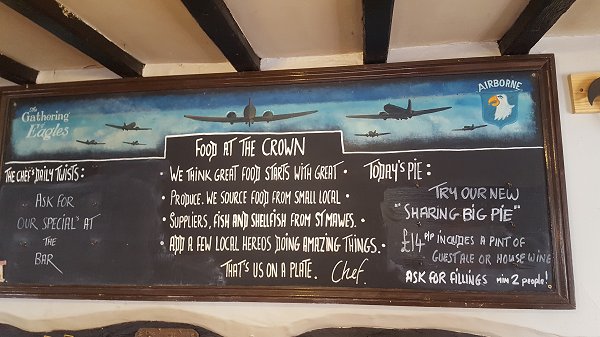 The
Gathering
Eagles
AIRBORNE
THE CHEF'S DAILY TWISTS:
ASK FOR
OUR SPECIAL'S AT
THE
BAR
FOOD AT THE CROWN
• WE THINK GREAT FOOD STARTS WITH GREAT •
• PRODUCE. WE SOURCE FOOD FROM SMALL LOCAL •
• SUPPLIERS, FISH AND SHELLFISH FROM ST MAWES. •
• ADD A FEW LOCAL HEREOS DOING AMAZING THINGS. •
THAT'S US ON A PLATE. Chef.
TODAY'S PIE:
TRY OUR NEW
"SHARING BIG PIE"
£14 P/P INCLUDES A PINT OF
GUEST ALE OR HOUSE WINE
ASK FOR FILLINGS MIN 2 PEOPLE!